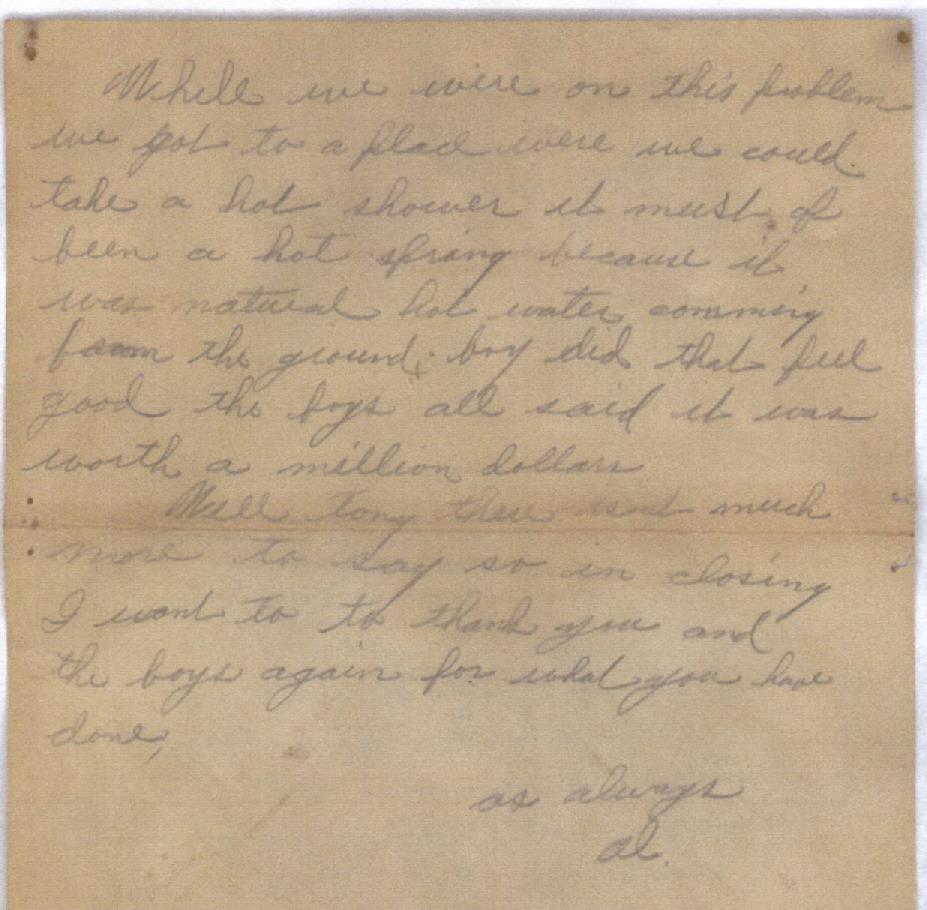 While we were on this problem
we got to a place were we could
take a hot shower it must of
been a hot spring because it
was natural hot water comming
from the ground, boy did that feel
good the boys all said it was
worth a million dollars
Well Tony there isnt much
more to say so in closing
I want to to thank you and
the boys again for what you have
done,
as always
Al.